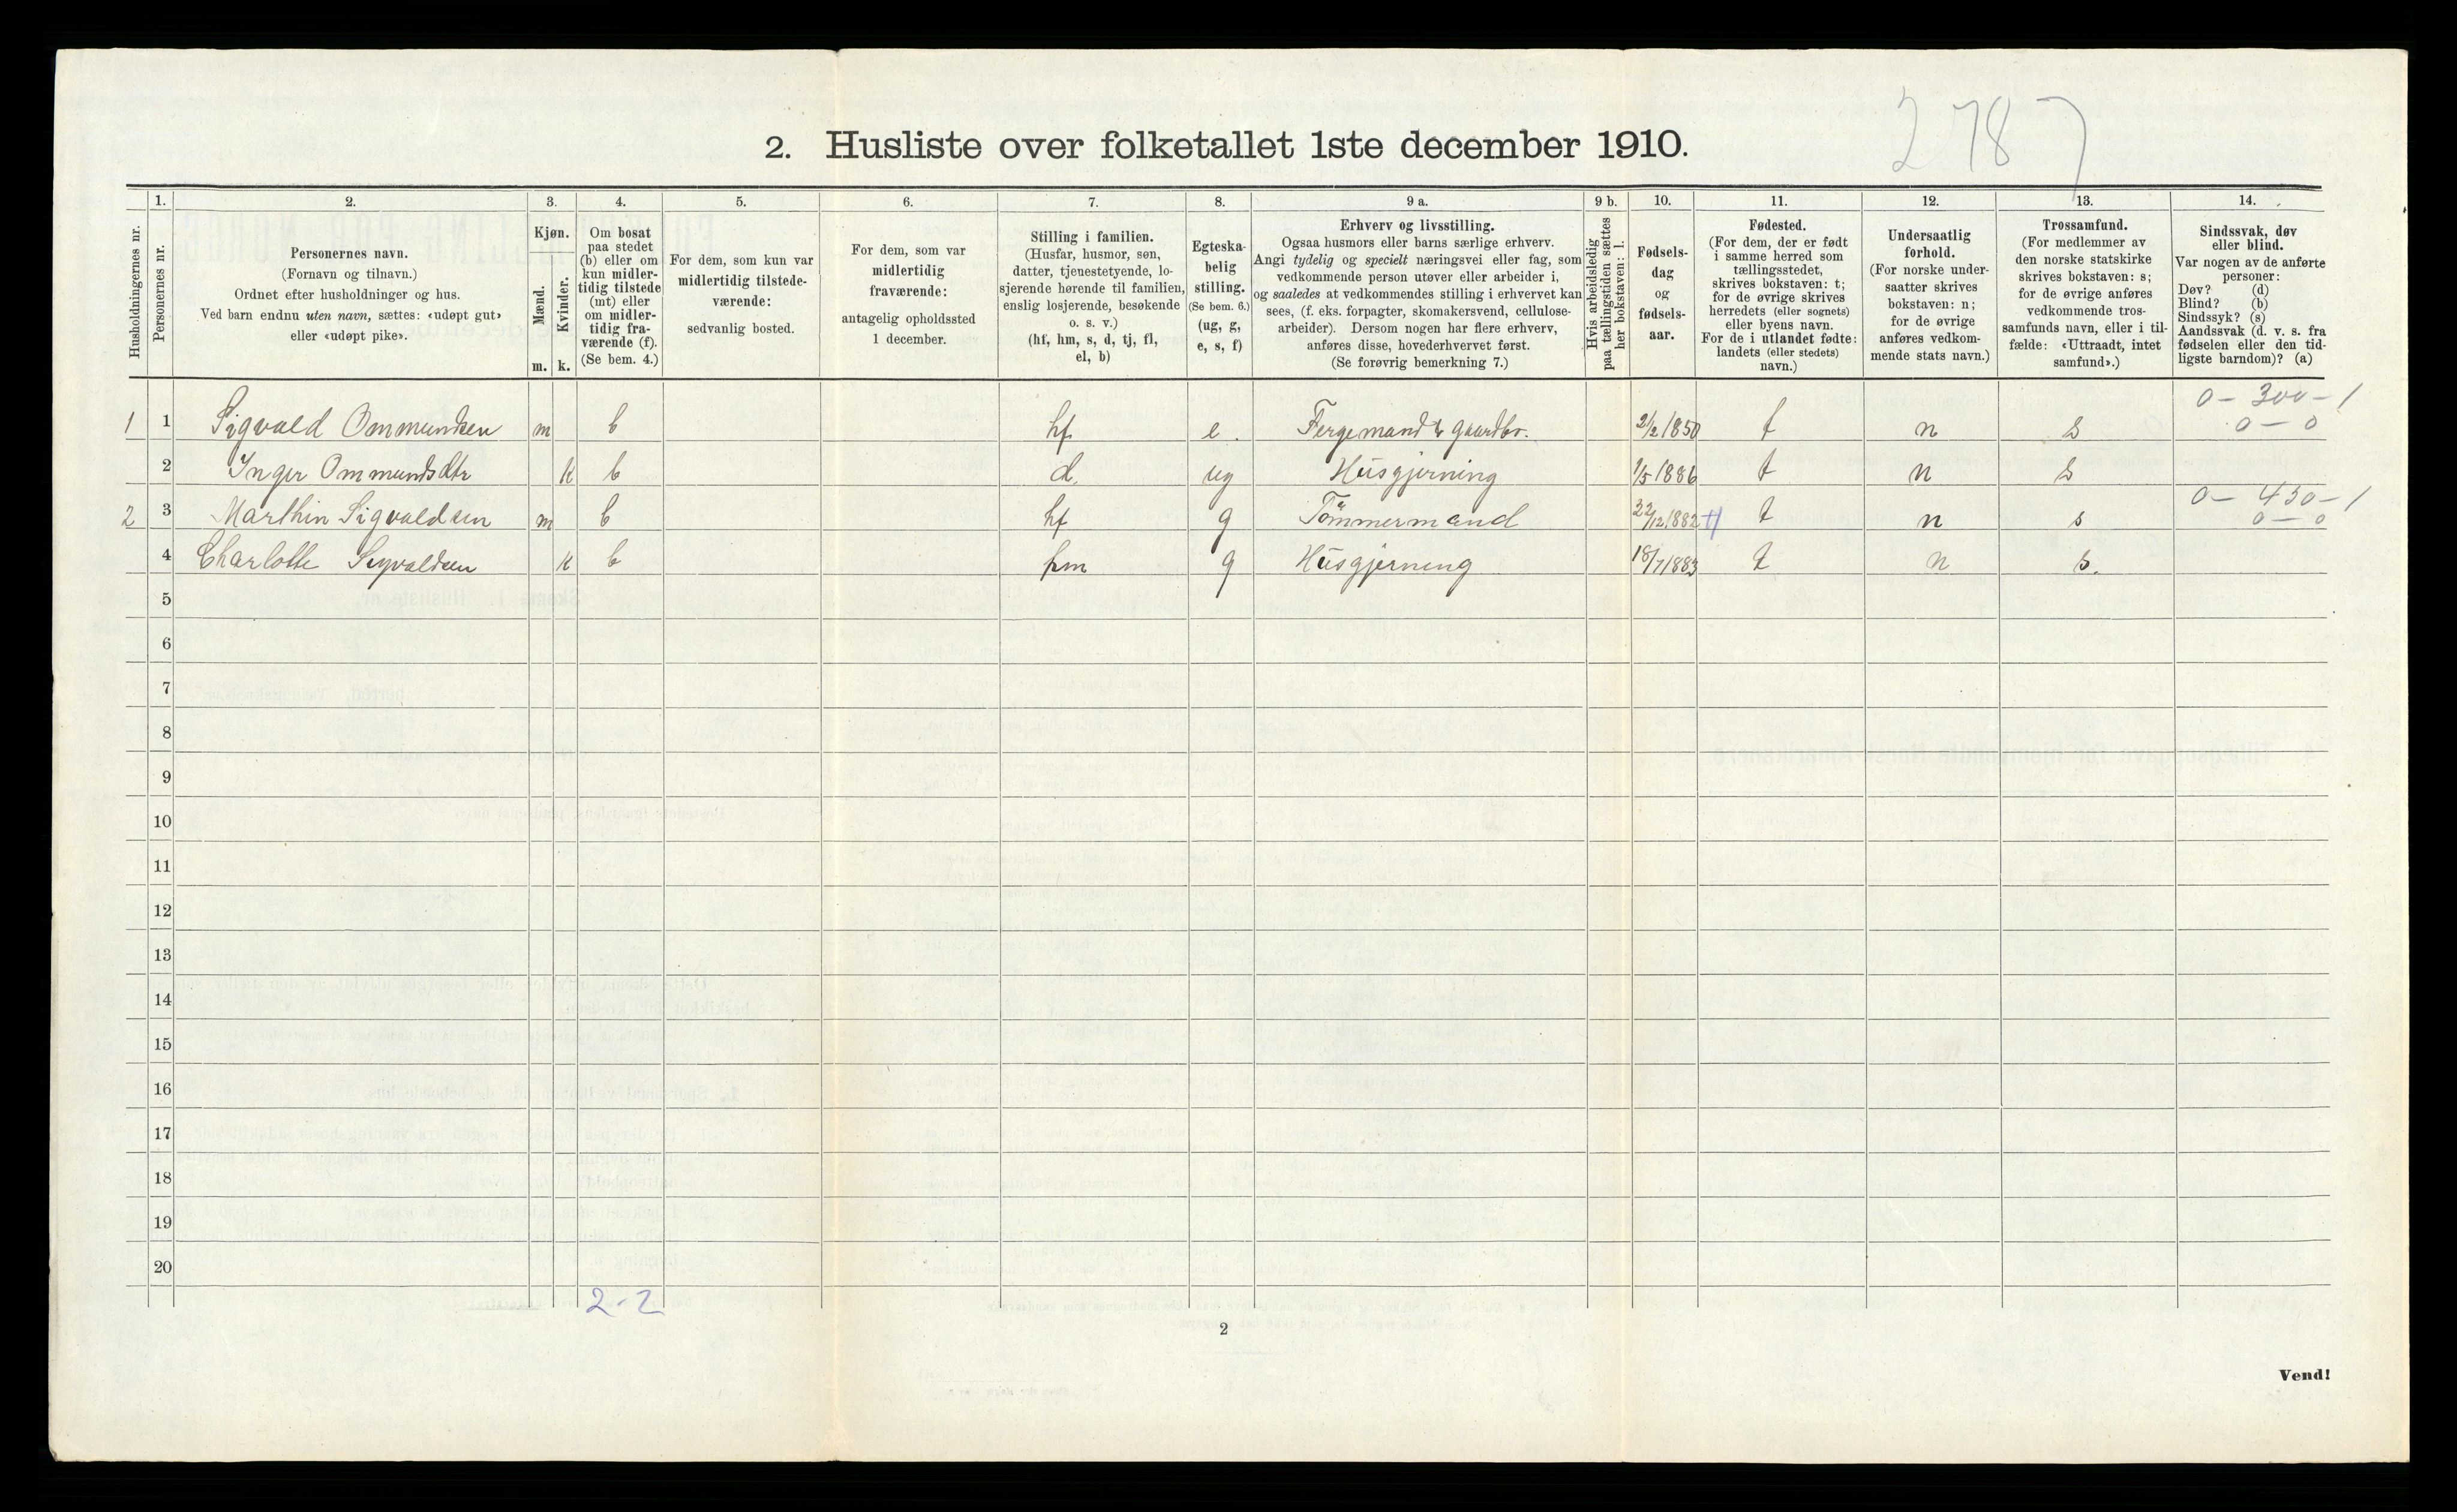 2787
2. Husliste over folketallet 1ste december 1910.
Husholdningernes nr.
1.
Personernes nr.
2.
Personernes navn.
(Fornavn og tilnavn.)
Ordnet efter husholdninger og hus.
Ved barn endnu uten navn, sættes: «udøpt gut»
eller «udøpt pike».
3.
Kjøn.
Mænd.
Kvinder.
m. k.
4.
Om bosat
paa stedet
(b) eller om
kun midler-
tidig tilstede
(mt) eller
om midler-
tidig fra-
værende (f).
(Se bem. 4.)
5.
For dem, som kun var
midlertidig tilstede-
værende:
sedvanlig bosted.
6.
For dem, som var
midlertidig
fraværende:
antagelig opholdssted
1 december.
7.
Stilling i familien.
(Husfar, husmor, søn,
datter, tjenestetyende, lo-
sjerende hørende til familien,
enslig losjerende, besøkende
o. s. v.)
(hf, hm, s, d, tj, fl,
el, b)
8.
Egteska-
belig
stilling.
(Se bem. 6.)
(ug, g,
e, s, f)
9 a.
Erhverv og livsstilling.
Ogsaa husmors eller barns særlige erhverv.
Angi tydelig og specielt næringsvei eller fag, som
vedkommende person utøver eller arbeider i,
og saaledes at vedkommendes stilling i erhvervet kan
sees, (f. eks. forpagter, skomakersvend, cellulose-
arbeider). Dersom nogen har flere erhverv,
anføres disse, hovederhvervet først.
(Se forøvrig bemerkning 7.)
9 b.
Hvis arbeidsledig
paa tællingstiden sættes
her bokstaven: l.
10.
Fødsels-
dag
og
fødsels-
aar.
11.
Fødested.
(For dem, der er født
i samme herred som
tællingsstedet,
skrives bokstaven: t;
for de øvrige skrives
herredets (eller sognets)
eller byens navn.
For de i utlandet fødte:
landets (eller stedets)
navn.)
12.
Undersaatlig
forhold.
(For norske under-
saatter skrives
bokstaven: n;
for de øvrige
anføres vedkom-
mende stats navn.)
13.
Trossamfund.
(For medlemmer av
den norske statskirke
skrives bokstaven: s;
for de øvrige anføres
vedkommende tros-
samfunds navn, eller i til-
fælde: «Uttraadt, intet
samfund».)
14.
Sindssvak, døv
eller blind.
Var nogen av de anførte
personer:
Døv? (d)
Blind? (b)
Sindssyk? (s)
Aandssvak (d. v. s. fra
fødselen eller den tid-
ligste barndom)? (a)
0 - 300 - 1
1 1 Sigvald Ommundsen m b hf e. Fergemand & gaardbr. 2/2 1850 t n s 0 - 0
2 Inger Ommundsdtr k b d. ug Husgjerning 1/5 1886 t n s
0 - 450 - 1
2 3 Marthin Sigvaldsen m b hf g Tømmermand 22/12 1882 t n s 0 - 0
4 Charlotte Sigvaldsen k b hm g Husgjerning 18/7 1883 t n s.
5
6
7
8
9
10
11
12
13
14
15
16
17
18
19
20
2-2
2
Vend!